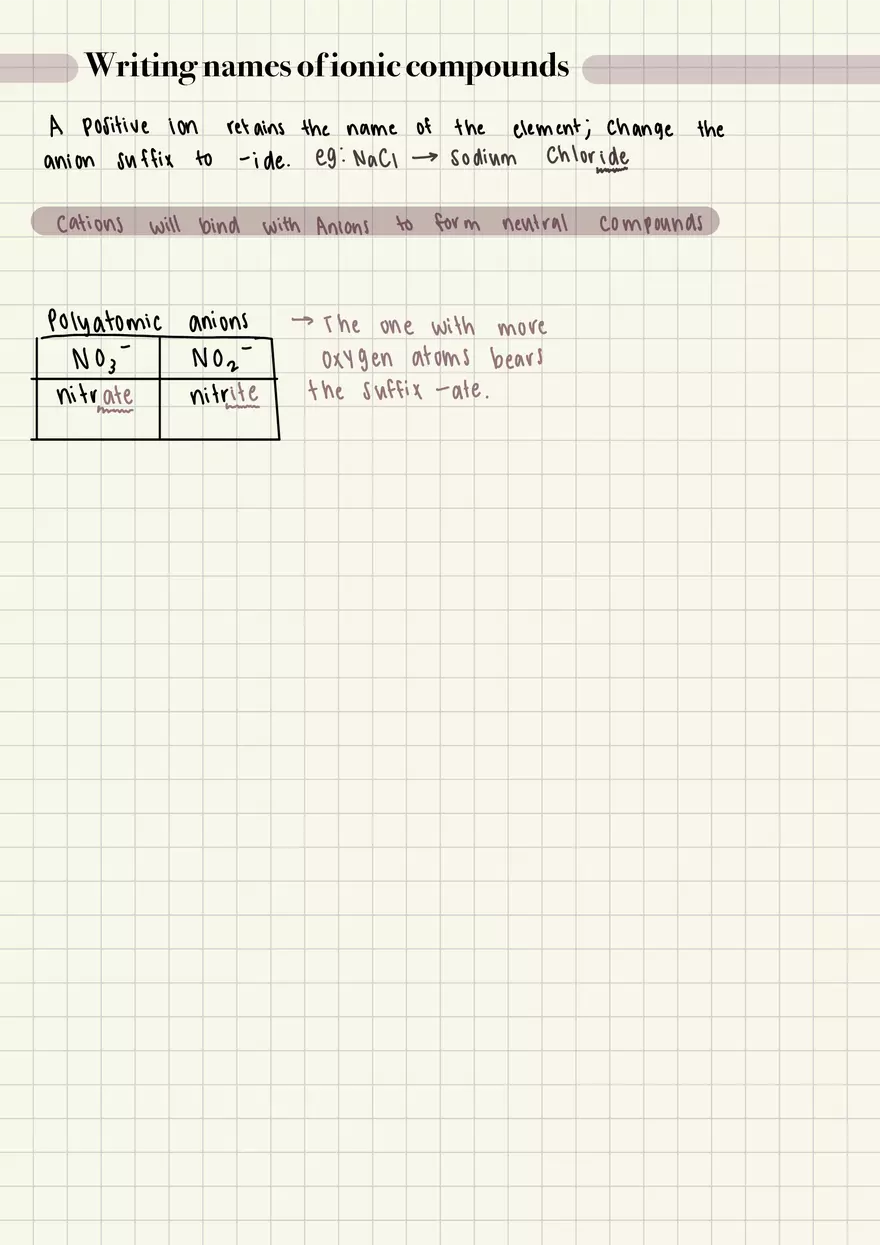 Writing names of ionic compounds
A positive ion retains the name of the element; change the
anion suffix to -ide. eg: NaCl → Sodium Chloride
Cations will bind with Anions to form neutral compounds
Polyatomic anions → The one with more
NO₃⁻ NO₂⁻ oxygen atoms bears
nitrate nitrite the suffix -ate.